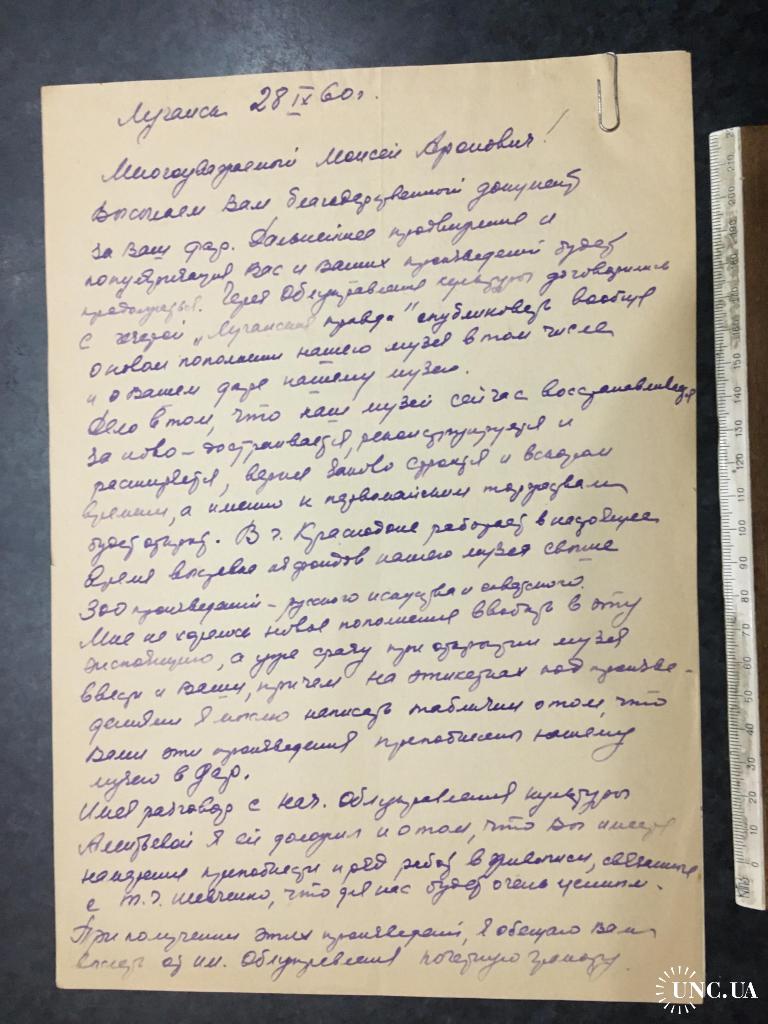 Луганск 28 IX 60 г.
Многоуважаемый Моисей Аронович!
Высылаем Вам благодарственный документ
за Ваш дар. Дальнейшее продвижение и
популяризация Вас и Ваших произведений будет
продолжаться. Через Облуправление культуры договорились
с газетой „Луганская правда" опубликовать вообще
о новом пополнении нашего музея в том числе
и о Вашем даре нашему музею.
Дело в том, что наш музей сейчас восстанавливается
за ново – достраивается, реконструируется и
расширяется, вернее заново строится и вскором
времени, а именно к первомайским торжествам
будет открыт. В г. Краснодоне работает в настоящее
время выставка из фондов нашего музея свыше
300 произведений – русского искусства и советского.
Мне не хотелось новое пополнение вводить в эту
экспозицию, а уже сразу при открытии музея
ввести и Ваши, причем на этикетках под произве-
дениями я мыслю написать таблички о том, что
Вами эти произведения преподнесены нашему
музею в дар.
Имея разговор с нач. Облуправления культуры
я ей доложил и о том, что Вы имеете
намерение преподнести и ряд работ в живописи, связанных
с Т. Г. Шевченко, что для нас будет очень ценным.
При получении этих произведений, я обещаю Вам
выслать от им. Облуправления почетную грамоту
UNC.UA